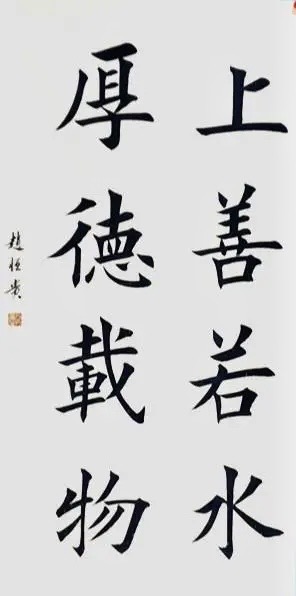 上善若水
厚德載物
趙恒貴